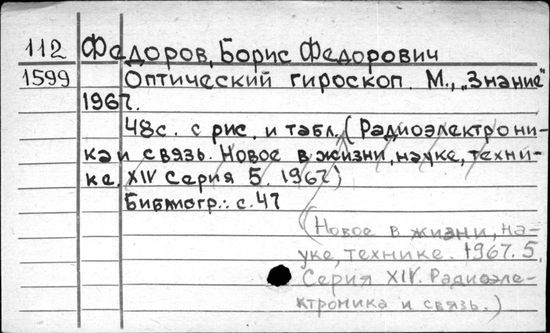 112 Федоров, Борис Федорович
1599 Оптический гироскоп. М., „Знание"
1967.
48с. с рис. и табл. (Радиоэлектрони-
ка и связь. Новое в жизни, науке, техни-
ке. XIV Серия 5. 1967)
Библиогр.: с. 47
(Новое в жизни, на-
уке, технике. 1967. 5.
Серия XIV. Радиоэле-
ктроника и связь.)